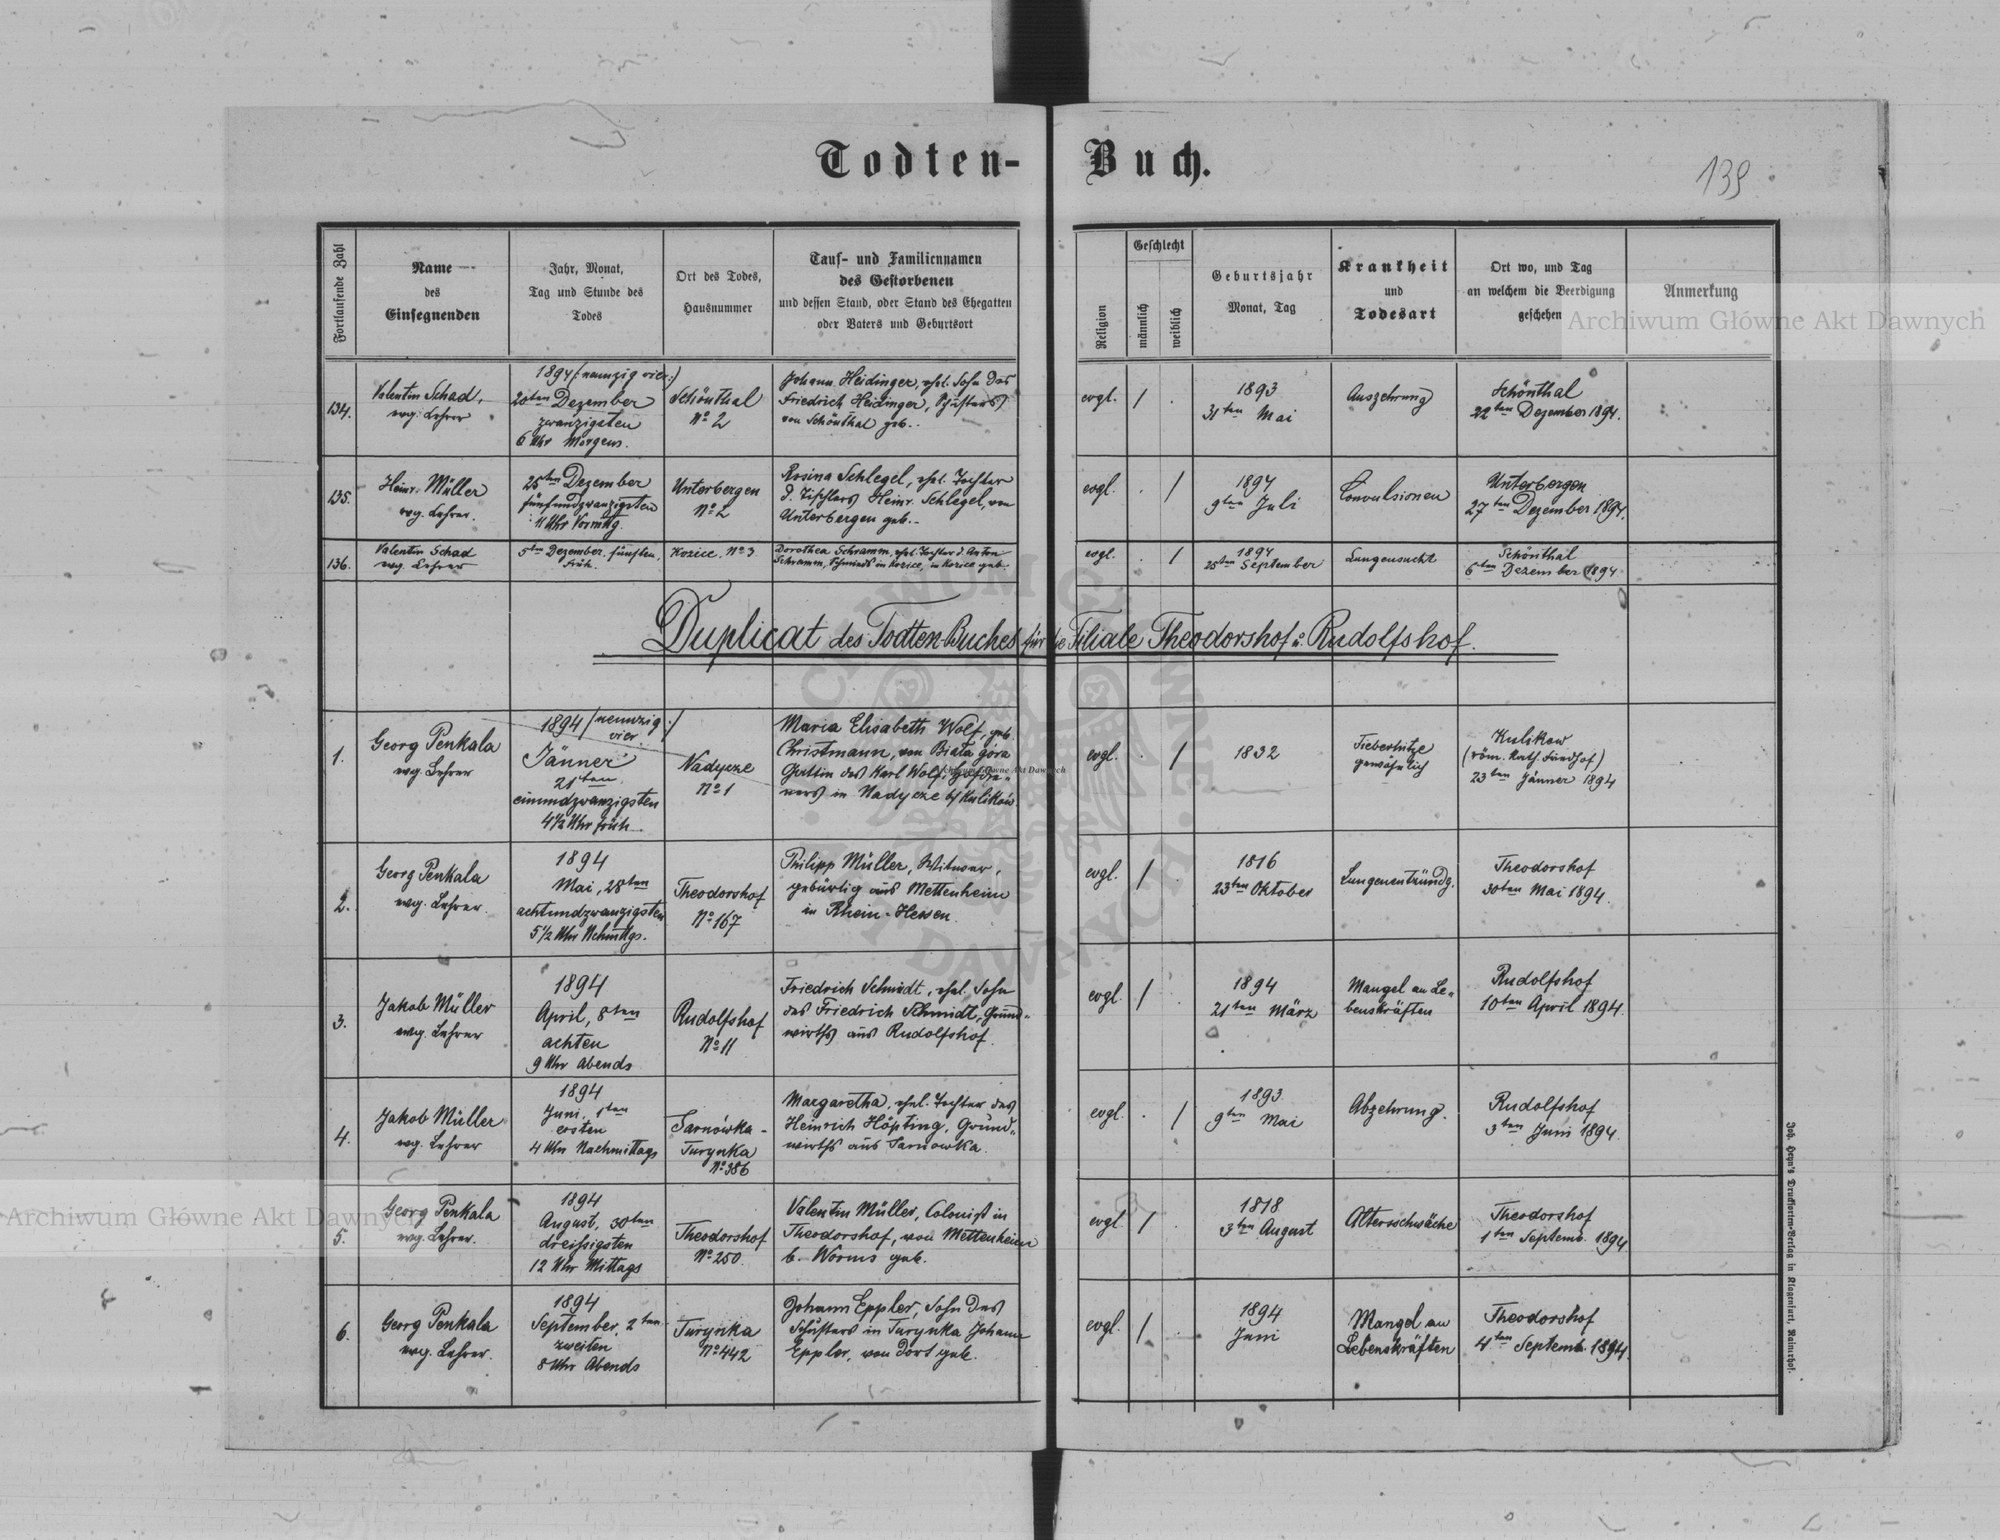 Todten-Buch.
139
Fortlaufende Zahl
Name
des
Einsegnenden
Jahr, Monat,
Tag und Stunde des
Todes
Ort des Todes,
Hausnummer
Tauf- und Familiennamen
des Gestorbenen
und dessen Stand, oder Stand des Ehegatten
oder Vaters und Geburtsort
Religion
Geschlecht
männlich
weiblich
Geburtsjahr
Monat, Tag
Krankheit
und
Todesart
Ort wo, und Tag
an welchem die Beerdigung
geschehen
Anmerkung
Archiwum Główne Akt Dawnych
134.
Valentin Schad,
evg. Lehrer
1894 (: neunzig vier :)
20ten Dezember
zwanzigsten
6 Uhr Morgens.
Schönthal
No 2
Johann Heidinger, ehel. Sohn des
Friedrich Heidinger, Schusters
von Schönthal geb.
evgl. / .
1893
31ten Mai
Auszehrung
Schönthal
22ten Dezember 1894.
135.
Heinr. Müller
evg. Lehrer.
25ten Dezember
fünfundzwanzigsten
11 Uhr Vormttg.
Unterbergen
No 2
Rosina Schlegel, ehel. Tochter
d. Tischlers Heinr. Schlegel, von
Unterbergen geb.
evgl. . /
1894
9ten Juli
Convulsionen
Unterbergen
27ten Dezember 1894.
136.
Valentin Schad
evg. Lehrer
5ten Dezember fünften,
früh.
Kozice No 3
Dorothea Schramm, ehel. Tochter d. Anton
Schramm, Schmieds in Kozice, in Kozice geb.
evgl. . /
1894
25ten September
Lungensucht
Schönthal
6ten Dezember 1894
Duplicat des Todten-Buches für die Filiale Theodorshof u. Rudolfshof.
1.
Georg Penkala
evg. Lehrer
1894 /: neunzig
vier :/
Jänner
21ten
einundzwanzigsten
4 1/2 Uhr früh.
Nadycze
No 1
Maria Elisabeth Wolf, geb.
Christmann, von Biała góra
Gattin des Karl Wolf,
in Nadycze b/ Kulików
Archiwum Główne Akt Dawnych
evgl. . /
1832
Fieberhitze
gewöhnlich
Kulikow
(röm. Kath. Friedhof)
23ten Jänner 1894
2.
Georg Penkala
evg. Lehrer.
1894
Mai, 28ten
achtundzwanzigsten
5 1/2 Uhr Nchmttgs.
Theodorshof
No 167
Philipp Müller, Witwer,
gebürtig aus Mettenheim
in Rhein-Hessen.
evgl. / .
1816
23ten Oktober
Lungenentzündg.
Theodorshof
30ten Mai 1894.
3.
Jakob Müller
evg. Lehrer
1894
April, 8ten
achten
9 Uhr Abends
Rudolfshof
No 11
Friedrich Schmidt, ehel. Sohn
des Friedrich Schmidt, Grund-
wirths aus Rudolfshof.
evgl. / .
1894
21ten März
Mangel an Le-
benskräften
Rudolfshof
10ten April 1894.
4.
Jakob Müller
evg. Lehrer
1894
Juni, 1ten
ersten
4 Uhr Nachmittags
Tarnówka -
Turynka
No 386
Margaretha, ehel. Tochter des
Heinrich Höpting, Grund-
wirths aus Tarnowka.
evgl. . /
1893
9ten Mai
Abzehrung.
Rudolfshof
3ten Juni 1894.
5.
Georg Penkala
evg. Lehrer.
1894
August, 30ten
dreissigsten
12 Uhr Mittags
Theodorshof
No 250.
Valentin Müller, Colonist in
Theodorshof, von Mettenheim
b. Worms geb.
evgl. / .
1818
3ten August
Altersschwäche
Theodorshof
1ten Septemb. 1894.
6.
Georg Penkala
evg. Lehrer.
1894
September, 2ten
zweiten
8 Uhr Abends
Turynka
No 442
Johann Eppler, Sohn des
Schusters in Turynka Johann
Eppler, von dort geb.
evgl. / .
1894
Juni
Mangel an
Lebenskräften
Theodorshof
4ten Septemb. 1894.
Archiwum Główne Akt Dawnych
ARCHIWUM GŁÓWNE AKT DAWNYCH
Joh. Heyn's Drucksorten-Verlag in Klagenfurt, Rainerhof.